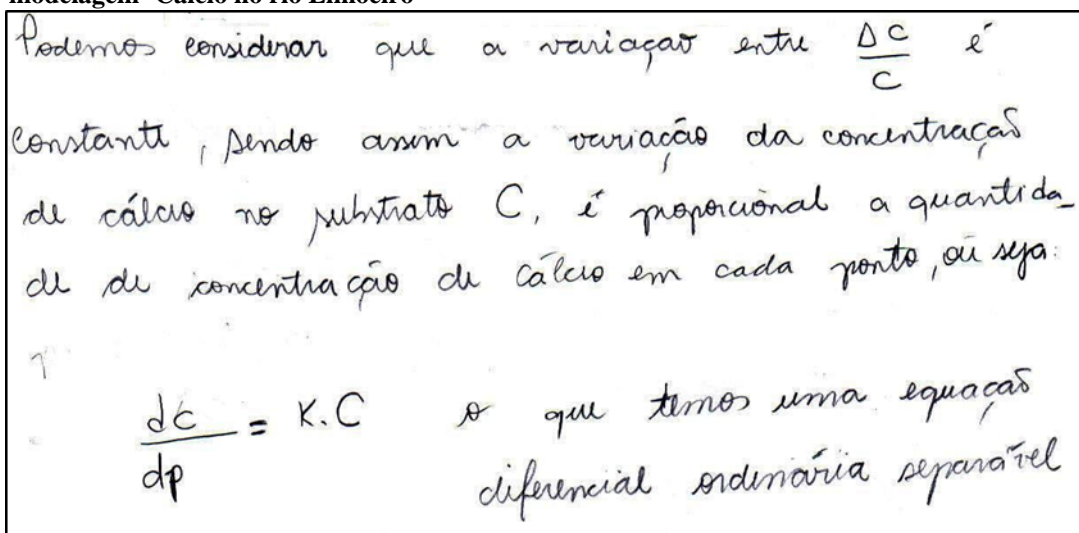 modelagem "Cálcio no rio Limoeiro"
Podemos considerar que a variação entre ΔC/C é
constante, sendo assim a variação da concentração
de cálcio no substrato C, é proporcional a quantida_
de de concentração de cálcio em cada ponto, ou seja:
dc/dp = K.C o que temos uma equação
diferencial ordinária separável